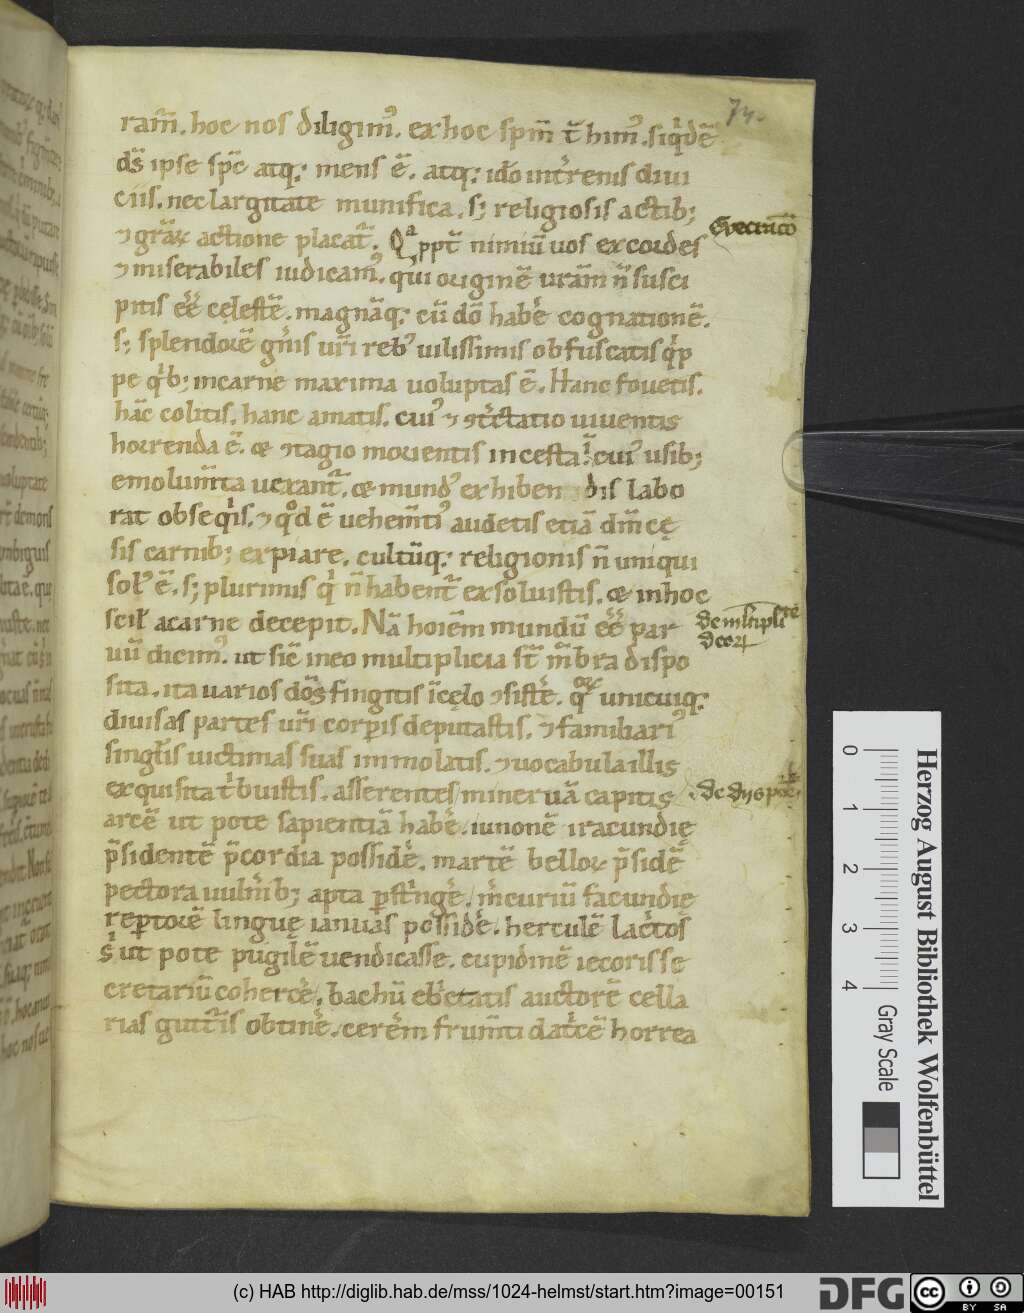 74.
ram̄. hoc nos diligim᾽. ex hoc spm̄ t̄ him᾽. siq̇dē
ds̄ ipse spc̄ atq; mens ē. atq; ido int̓renis diui
ciis. nec largitate munifica. s; religiosis actib;
⁊ gr̄aꝝ actione placat᷑. Qᵃ ppt̄ nimiū uos excordes
Exectuco
⁊ miserabiles iudicam᾽. qui originē urām n̄ susci
pitis eē cęlestē. magnāq; cū dō habe̓ cognationē.
s; splendorē gn̓is ur̄i reb᾽ uilissimis obfuscatis q̓p
pe q̓b; in carne maxima uoluptas ē. Hanc fouetis.
hāc colitis. hanc amatis. cui᾽ ⁊ ꝯt̓ctatio uiuentis
horrenda ē. & ꝯtagio morientis incesta. cui᾽ usib;
emolum̄ta uexant᷑. & mund᾽ exhiben dis labo
rat obseq̓is. ⁊ qͦd ē uehem̄ti᾽ audetis etiā dm̄ cę
sis carnib; expiare. cultūq; religionis n̄ uni qui
sol᾽ ē. s; plurimis q̓ n̄ habent᷑ exsoluistis. & in hoc
scil̓ a carne decepit. Nā hoiēm mundū eē par
De mltiplici
deoꝝ
uū dicim᾽. ut sic̄ in eo multiplicia st̄ m̄bra dispo
sita. ita uarios dōs fingitis ī cęlo ⁊sistē. qr unicuiq;
diuisas partes ur̄i corp̲is deputastis. ⁊ familiari᾽
singl̄is uictimas suas immolatis. ⁊ uocabula illis
exquisita t̓buistis. asserentes mineruā capitis
.De dijs
arcē ut pote sapientiā habe̓. iunonē iracundię
p̄sidentē p̄cordia posside̓. martē belloꝝ p̄sidē
pectora uuln̓ib; apta p̲st̓nge̓. m̓curiū facundię
rep̲torē linguę ianuas posside̓. herculē lac̓tos
s̓ ut pote pugilē uendicasse. cupidinē iecoris se
cretariū coherce̓. bachū eb̓etatis auctorē cella
rias gutt᷑is obtine̓. cere̓m frum̄ti dat̓cē horrea
Herzog August Bibliothek Wolfenbüttel
0 1 2 3 4 Gray Scale
(c) HAB http://diglib.hab.de/mss/1024-helmst/start.htm?image=00151
DFG
cc BY SA